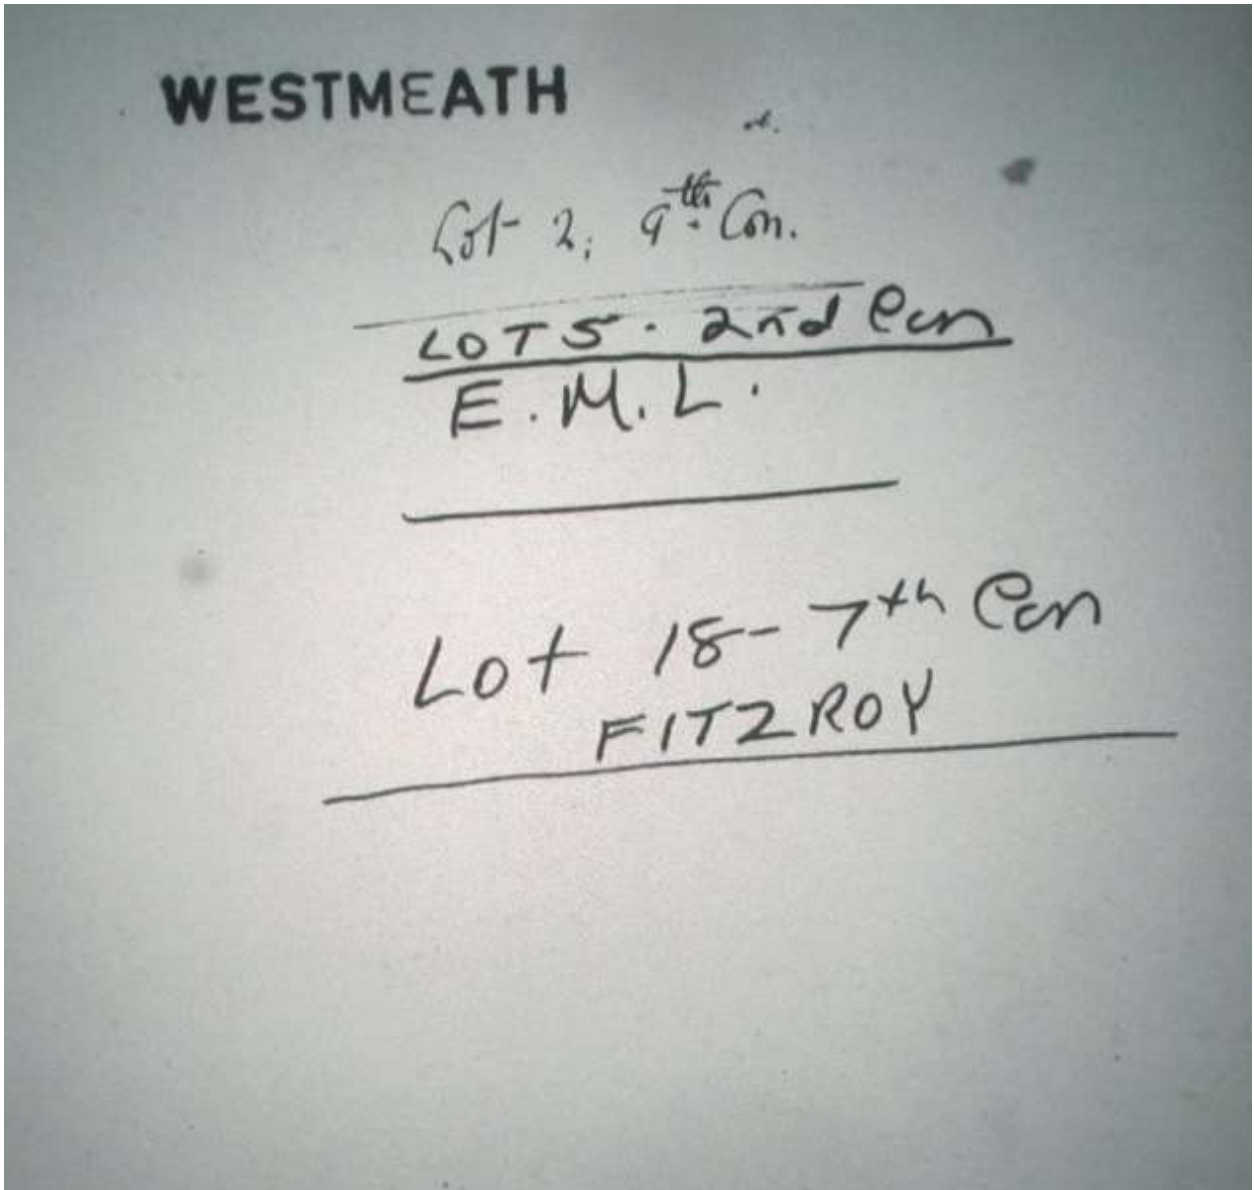 WESTMEATH
Lot 2, 9th Con.
LOT 5 · 2nd Con
E.M.L.
Lot 18- 7th Con
FITZROY